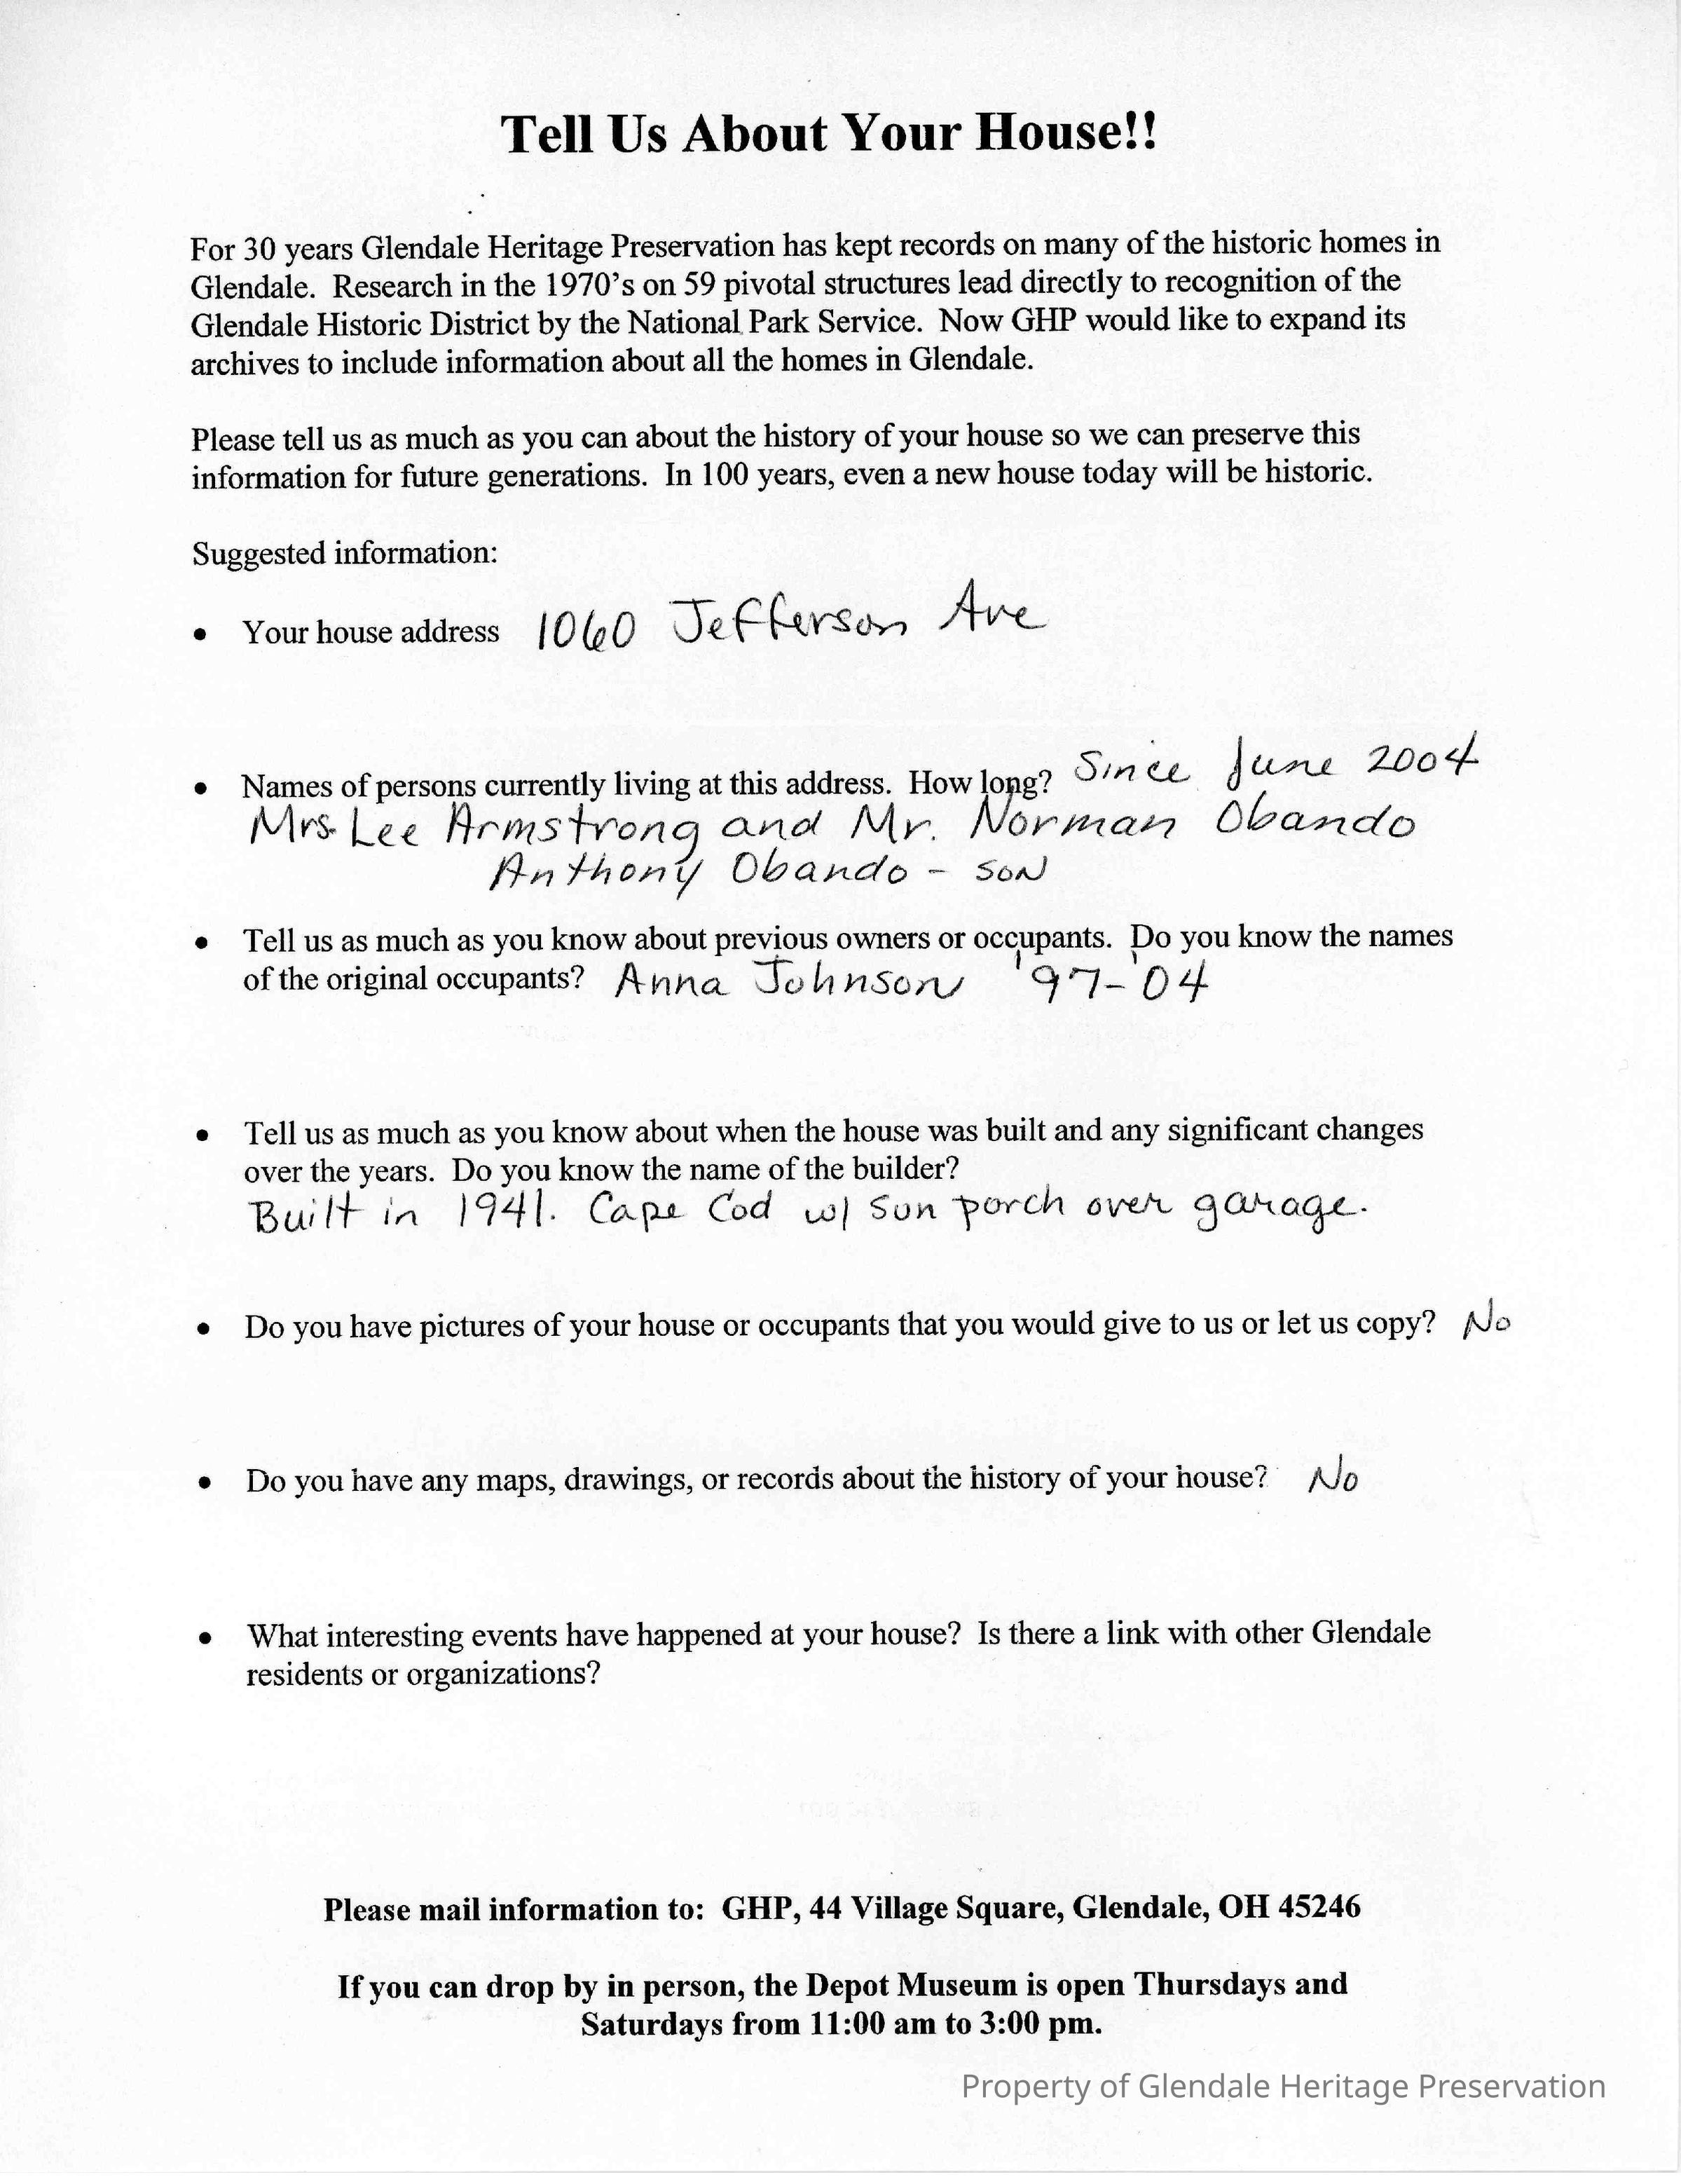 Tell Us About Your House!!
For 30 years Glendale Heritage Preservation has kept records on many of the historic homes in
Glendale. Research in the 1970's on 59 pivotal structures lead directly to recognition of the
Glendale Historic District by the National Park Service. Now GHP would like to expand its
archives to include information about all the homes in Glendale.
Please tell us as much as you can about the history of your house so we can preserve this
information for future generations. In 100 years, even a new house today will be historic.
Suggested information:
• Your house address 1060 Jefferson Ave
• Names of persons currently living at this address. How long? Since June 2004
Mrs. Lee Armstrong and Mr. Norman Obando
Anthony Obando - SON
• Tell us as much as you know about previous owners or occupants. Do you know the names
of the original occupants? Anna Johnson '97-'04
• Tell us as much as you know about when the house was built and any significant changes
over the years. Do you know the name of the builder?
Built in 1941. Cape Cod w/ sun porch over garage.
• Do you have pictures of your house or occupants that you would give to us or let us copy? No
• Do you have any maps, drawings, or records about the history of your house? No
• What interesting events have happened at your house? Is there a link with other Glendale
residents or organizations?
Please mail information to: GHP, 44 Village Square, Glendale, OH 45246
If you can drop by in person, the Depot Museum is open Thursdays and
Saturdays from 11:00 am to 3:00 pm.
Property of Glendale Heritage Preservation